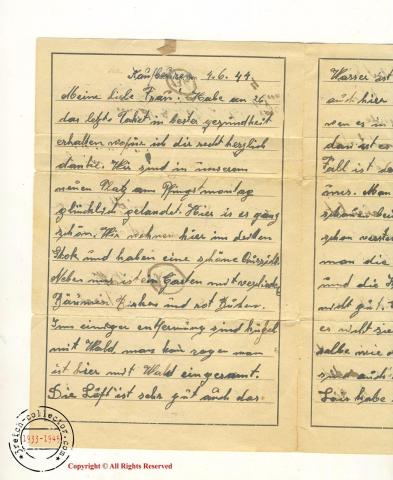 Kaufbeuren 4.6.44
Meine liebe Frau. Habe am 26.
das letzte Paket in bester gesundheit
erhalten wofür ich dir recht herzlich
danke. Wir sind in unserem
neuen Platz am Pfingstmontag
glücklich gelandet. Hier is er ganz
schön. Wir wohnen hier im dritten
Stok und haben eine schöne
Neben uns ist ein Garten mit
Bäumen. und rot
Inn einiger entfernung sind hügel
mit Wald man kan sagen man
ist hier mit Wald eingeramt.
Die Luft ist sehr gut auch das
Wasser ist
auch hier
wen es in
das ist es
Fall ist da
Man
schon
man die
und die
nicht gut.
er nicht
selbe wie d
sind auch
habe
3reich-collector.com
1933-1945
Copyright © All Rights Reserved